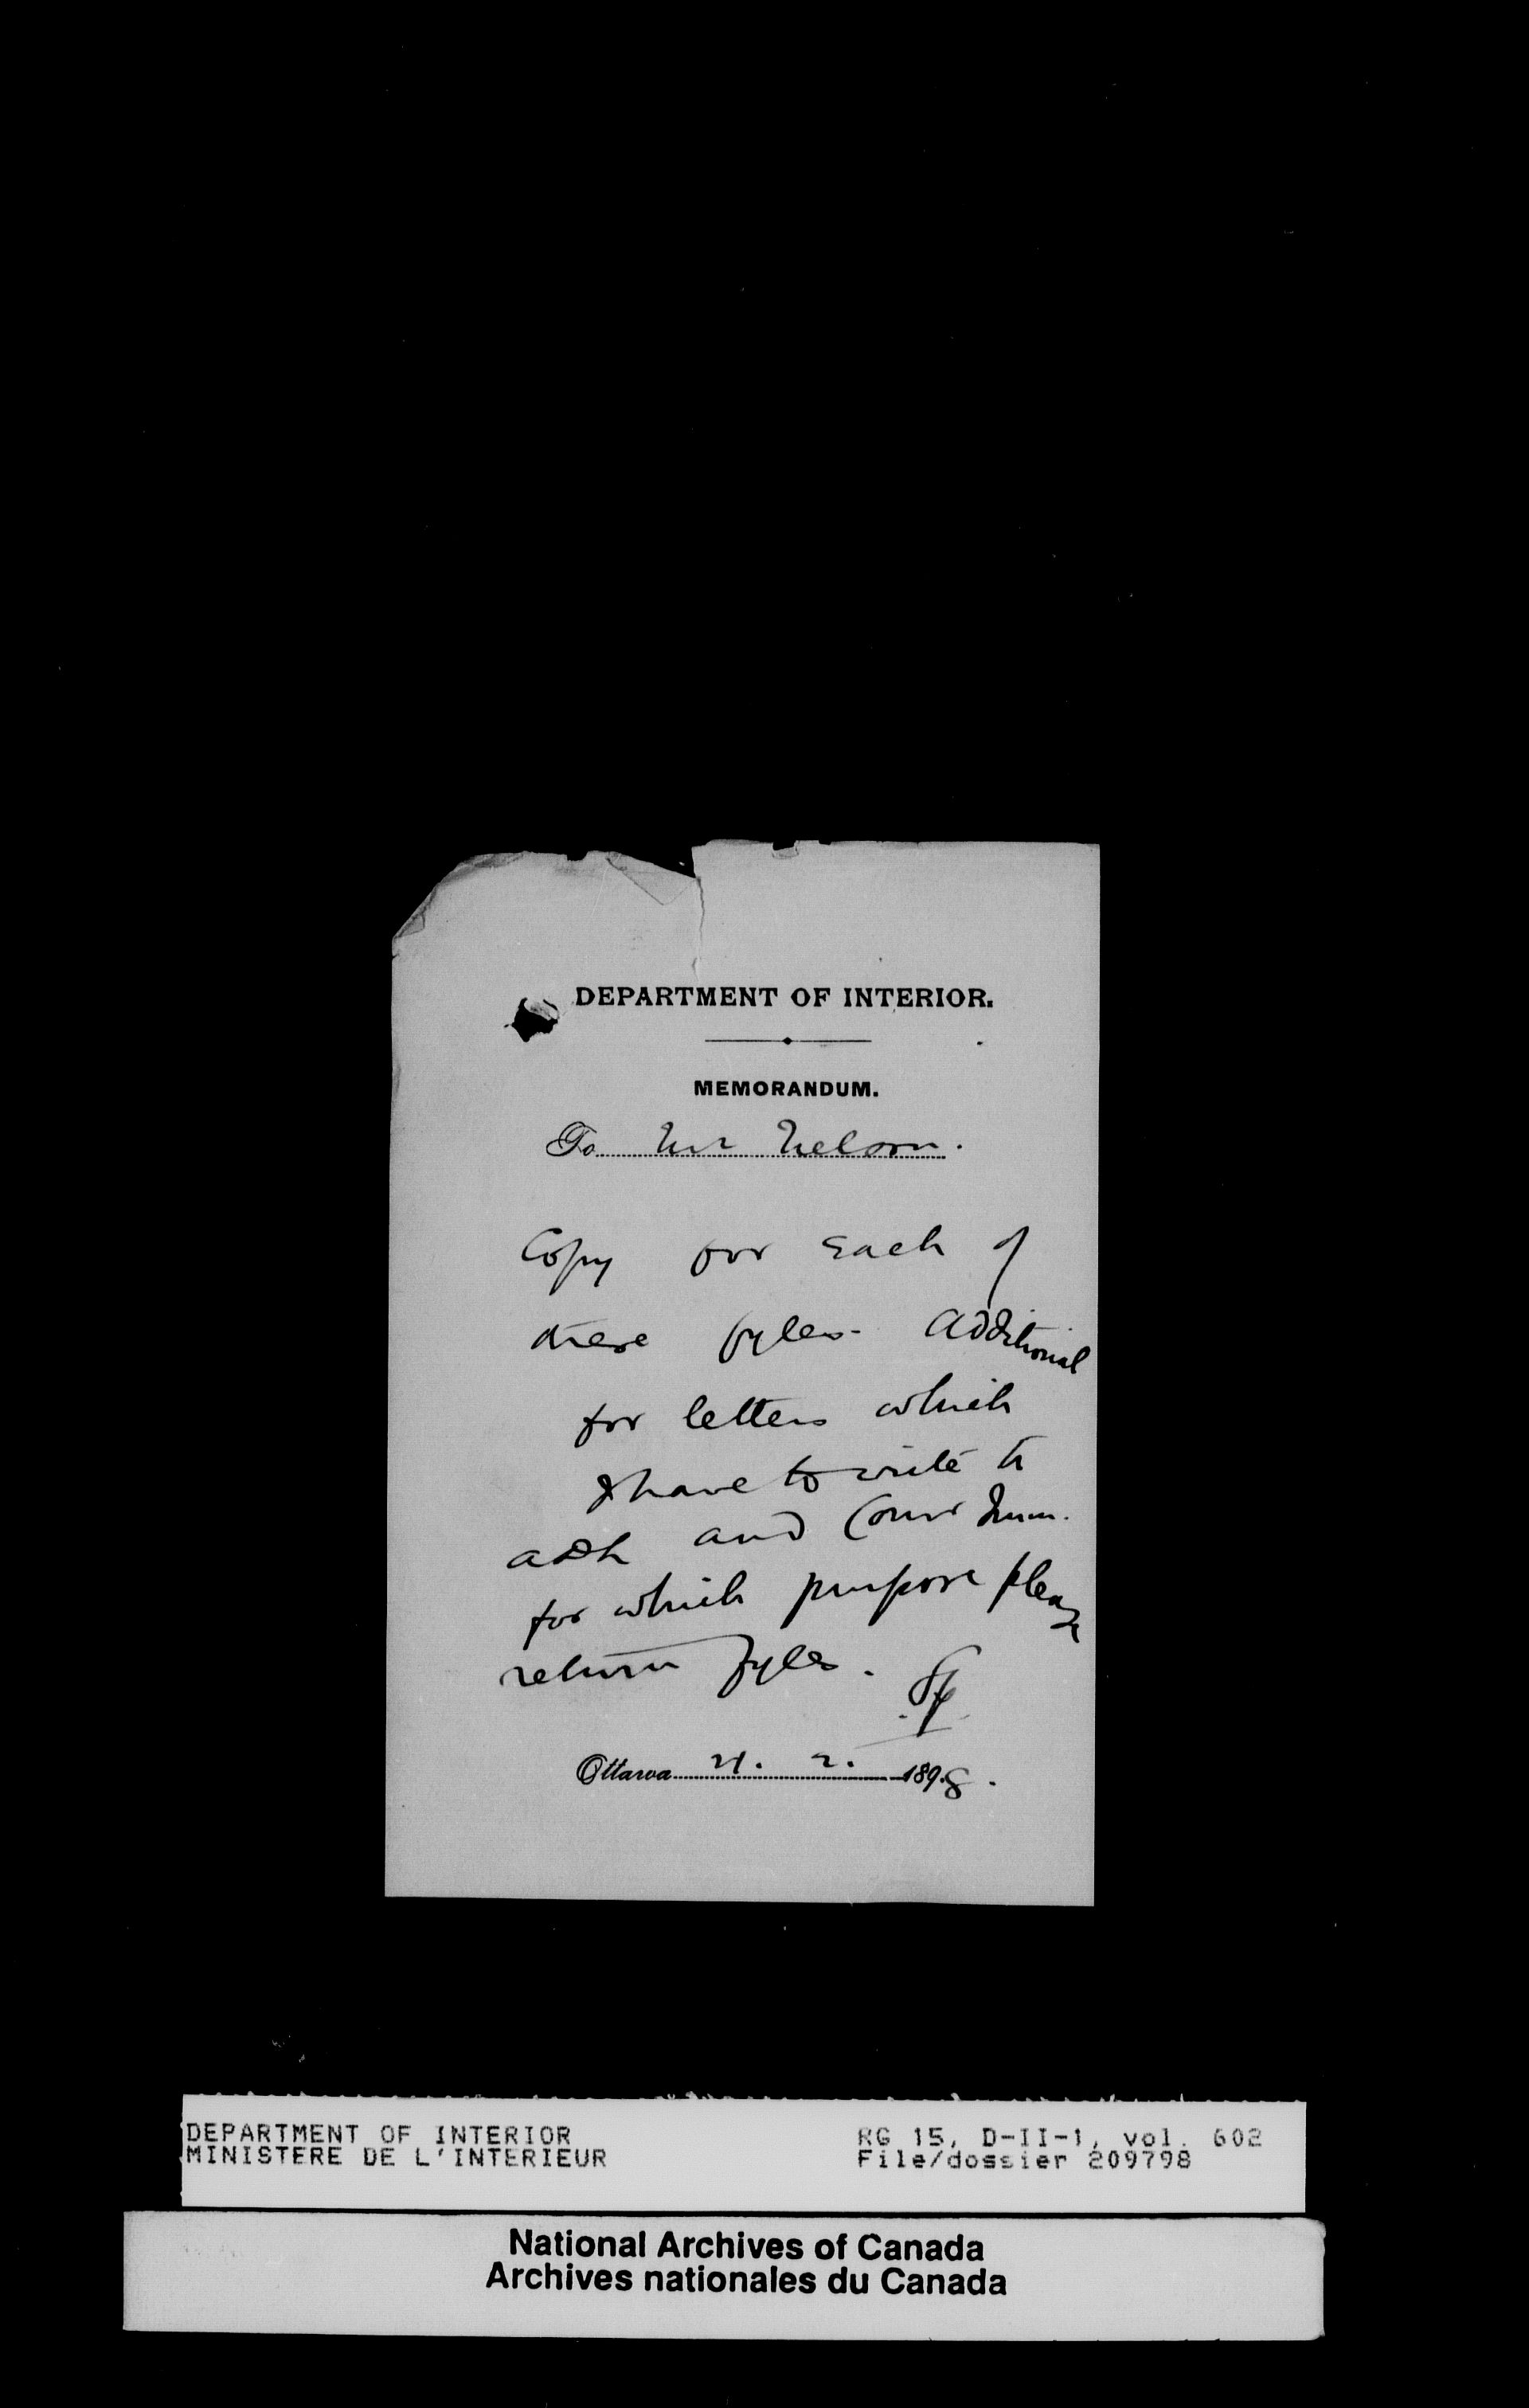 DEPARTMENT OF INTERIOR.
MEMORANDUM.
To Mr Nelson.
Copy for each of
these fyles. Additional
for letters which
I have to write to
and Comr Imm.
for which purpose please
return fyles.
Ottawa 21. 2. 1898.
DEPARTMENT OF INTERIOR
MINISTERE DE L'INTERIEUR
RG 15, D-II-1, vol. 602
File/dossier 209798
National Archives of Canada
Archives nationales du Canada